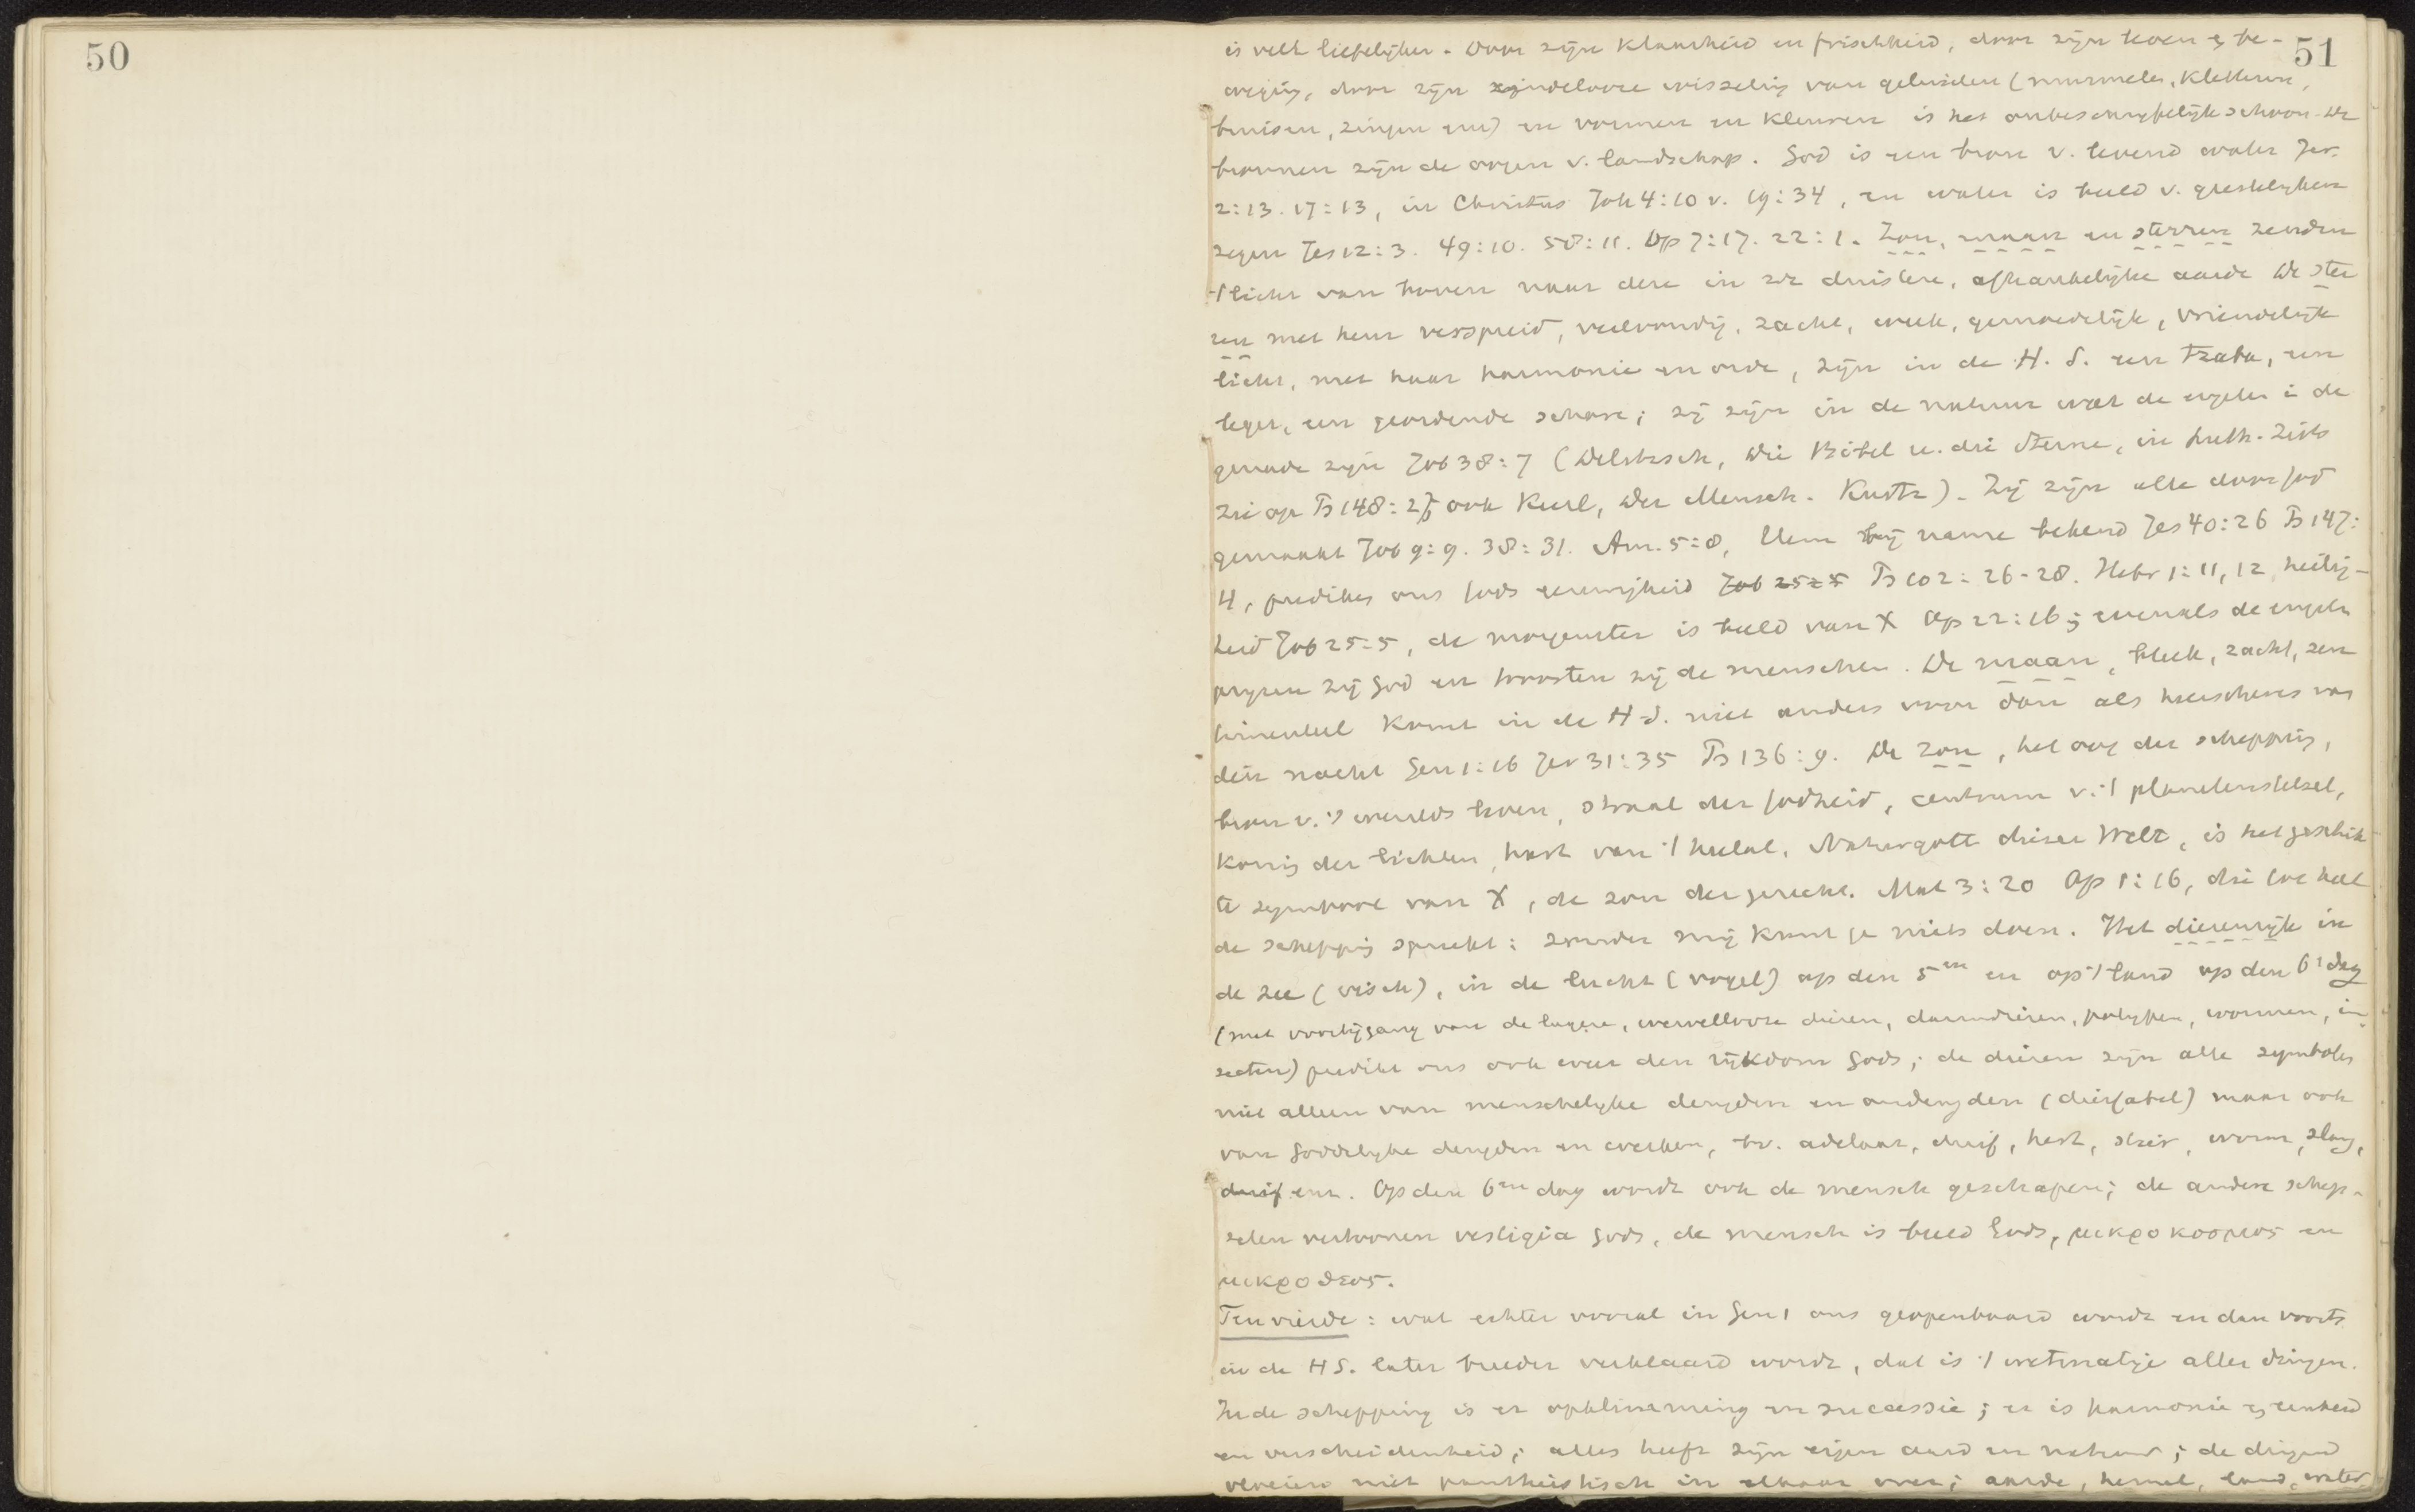 50
51
is veel liefelijker. Door zijn klaarheid en frischheid, door zijn leven & be-
weging, door zijn eindelooze wisseling van geluiden (murmelen, kletteren,
bruisen, zingen enz) en vormen en kleuren is het onbeschrijfelijk schoon. De
bronnen zijn de oogen v. landschap. God is een bron v. levend water Jer.
2:13. 17:13, in Christus Joh 4:10 v. 19:34, en water is beeld v. geestelijken
zegen Jes 12:3. 49:10. 58:11. Op 7:17. 22:1. Zon, maan en sterren zenden
't licht van boven naar deze in zich duistere, afhankelijke aarde De ster
ren met hun verspreid, veelvoudig, zacht, week, gemoedelijk, vriendelijk
licht, met haar harmonie en orde, zijn in de H. S. een tzaba, een
leger, een geordende schare; zij zijn in de natuur wat de engelen i de
genade zijn Job 38:7 (Delitzsch, Die Bibel u. die Sterne, in Luth. Zits
zie op Ps 148:2, ook Keerl, Der Mensch. Kurtz). Zij zijn alle door God
gemaakt Job 9:9. 38:31. Am. 5:8, Hem bij name bekend Jes 40:26 Ps 147:
4, prediken ons Gods eeuwigheid Job 25:5 Ps 102:26-28. Hebr 1:11,12, heilig-
heid Job 25:5, de morgenster is beeld van X Op 22:16; evenals de engelen
prijzen zij God en troosten zij de menschen. De maan, bleek, zacht, sen
timenteel komt in de H.S. niet anders voor dan als heerscheres van
den nacht Gen 1:16 Jer 31:35 Ps 136:9. De zon, het oog der schepping,
bron v. 's werelds leven, straal der Godheid, centrum v. 't planetenstelsel,
koning der lichten, hart van 't heelal, Naturgott dieser Welt, is het geschik
te symbool van X, de zon der gerecht. Mal 3:20 Op 1:16, die tot heel
de schepping spreekt: zonder mij kunt ge niets doen. Het dierenrijk in
de zee (visch), in de lucht (vogel) op den 5en en op 't land op den 6e dag
(met voorbijgang van de lagere, wervellooze dieren, darmdieren, polypen, wormen, in
secten) predikt ons ook weer den rijkdom Gods; de dieren zijn alle symbolen
niet alleen van menschelijke deugden en ondeugden (dierfabel) maar ook
van Goddelijke deugden en werken, bv. adelaar, duif, hert, stier, worm, slang,
duif enz. Op den 6en dag wordt ook de mensch geschapen; de andere schep-
selen vertoonen vestigia Gods, de mensch is beeld Gods, μικροκοσμος en
μικροθεος.
Ten vierde: wat echter vooral in Gen 1 ons geopenbaard wordt en dan voorts
in de HS. later breeder verklaard wordt, dat is 't wetmatige aller dingen.
In de schepping is er opklimming en successie; er is harmonie & eenheid
en verscheidenheid; alles heeft zijn eigen aard en natuur; de dingen
vloeien niet pantheistisch in elkaar over; aarde, hemel, land, water